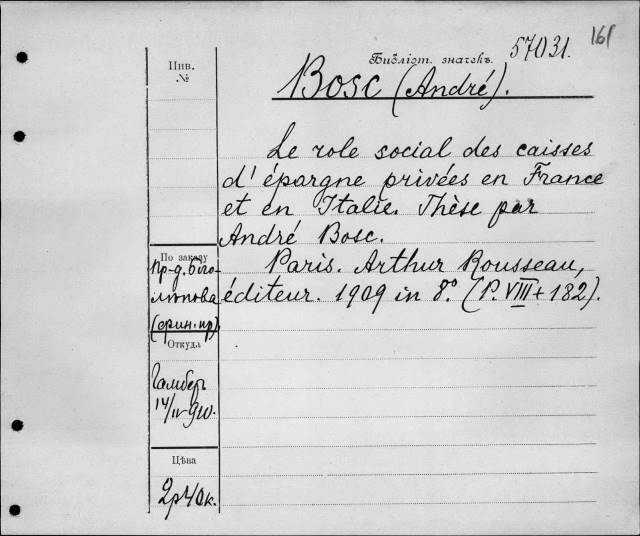 161
Библіот. значекъ.
57031.
Инв.
№
Bosc (André).
Le role social des caisses
d'épargne privées en France
et en Italie. Thèse par
André Bosc.
Paris. Arthur Rousseau,
éditeur. 1909 in 8.° (P. VIII + 182).
По заказу
Пр-д. Бого-
лѣпова
(фин. пр)
Откуда
Гамбер
14/IV 910.
Цѣна
2р40к.